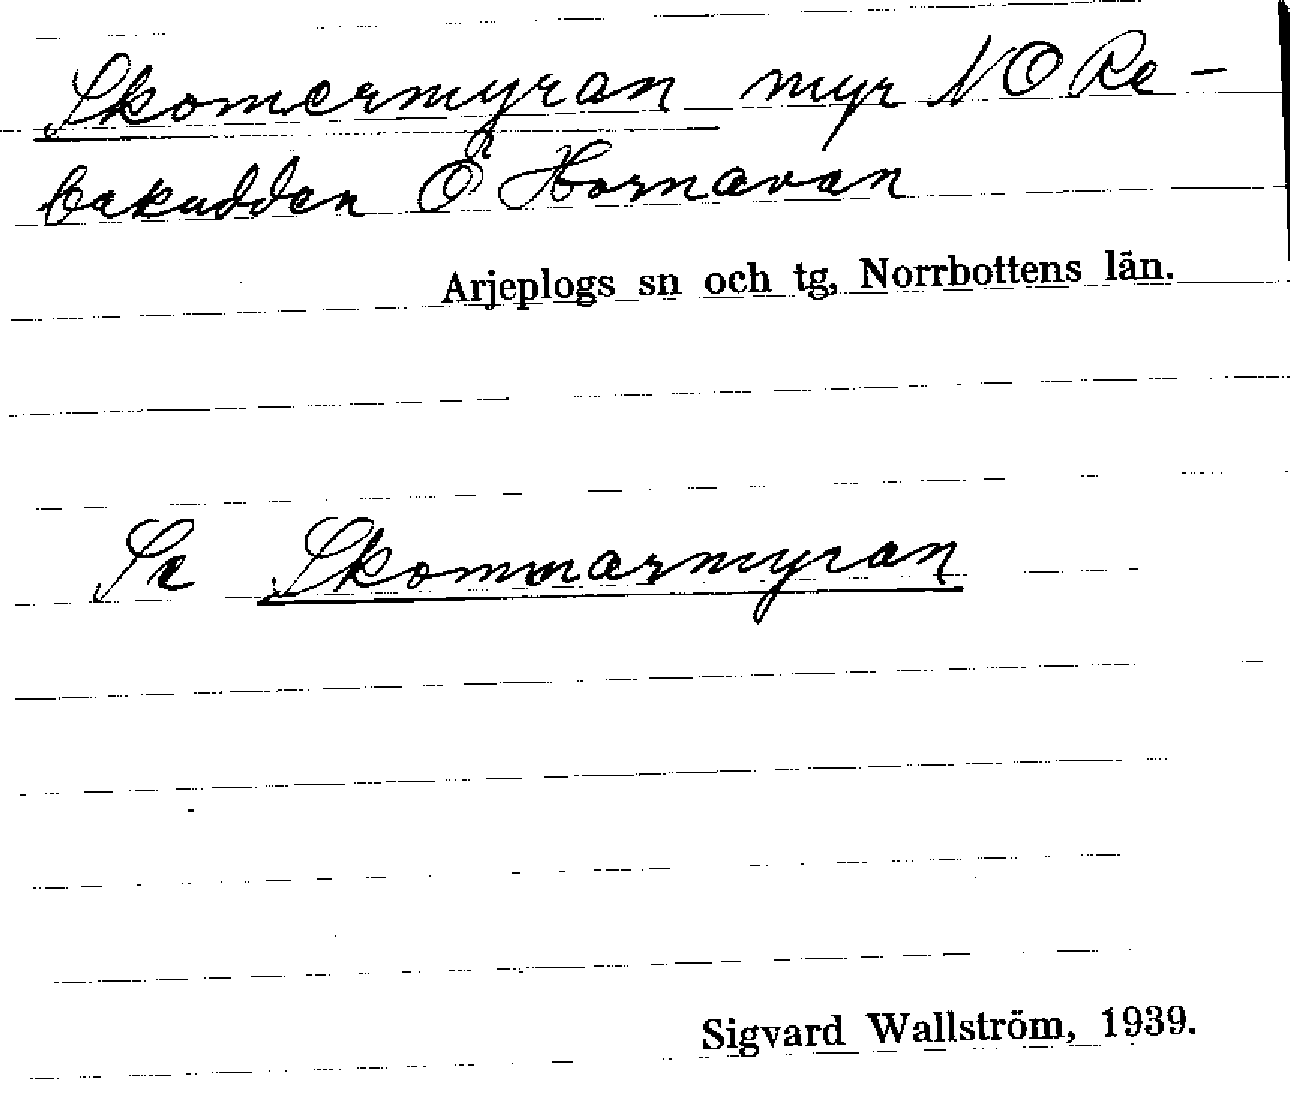 Skomermyran myr NO Re-
bakudden Ö Hornavan
Arjeplogs sn och tg, Norrbottens län.
Se Skommarmyran
Sigvard Wallström, 1939.